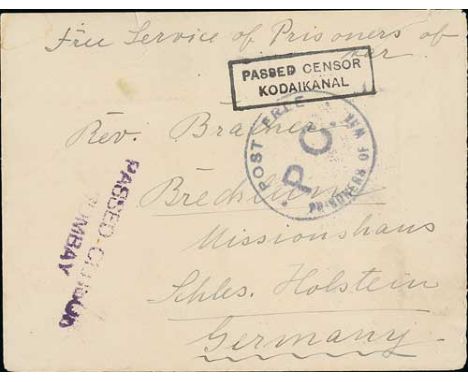 Free Service of Prisoners of
War
PASSED CENSOR
KODAIKANAL
POST FREE
P O
PRISONERS OF WAR
Rev.
PASSED CENSOR
BOMBAY
Missionshaus
Schles. Holstein
Germany